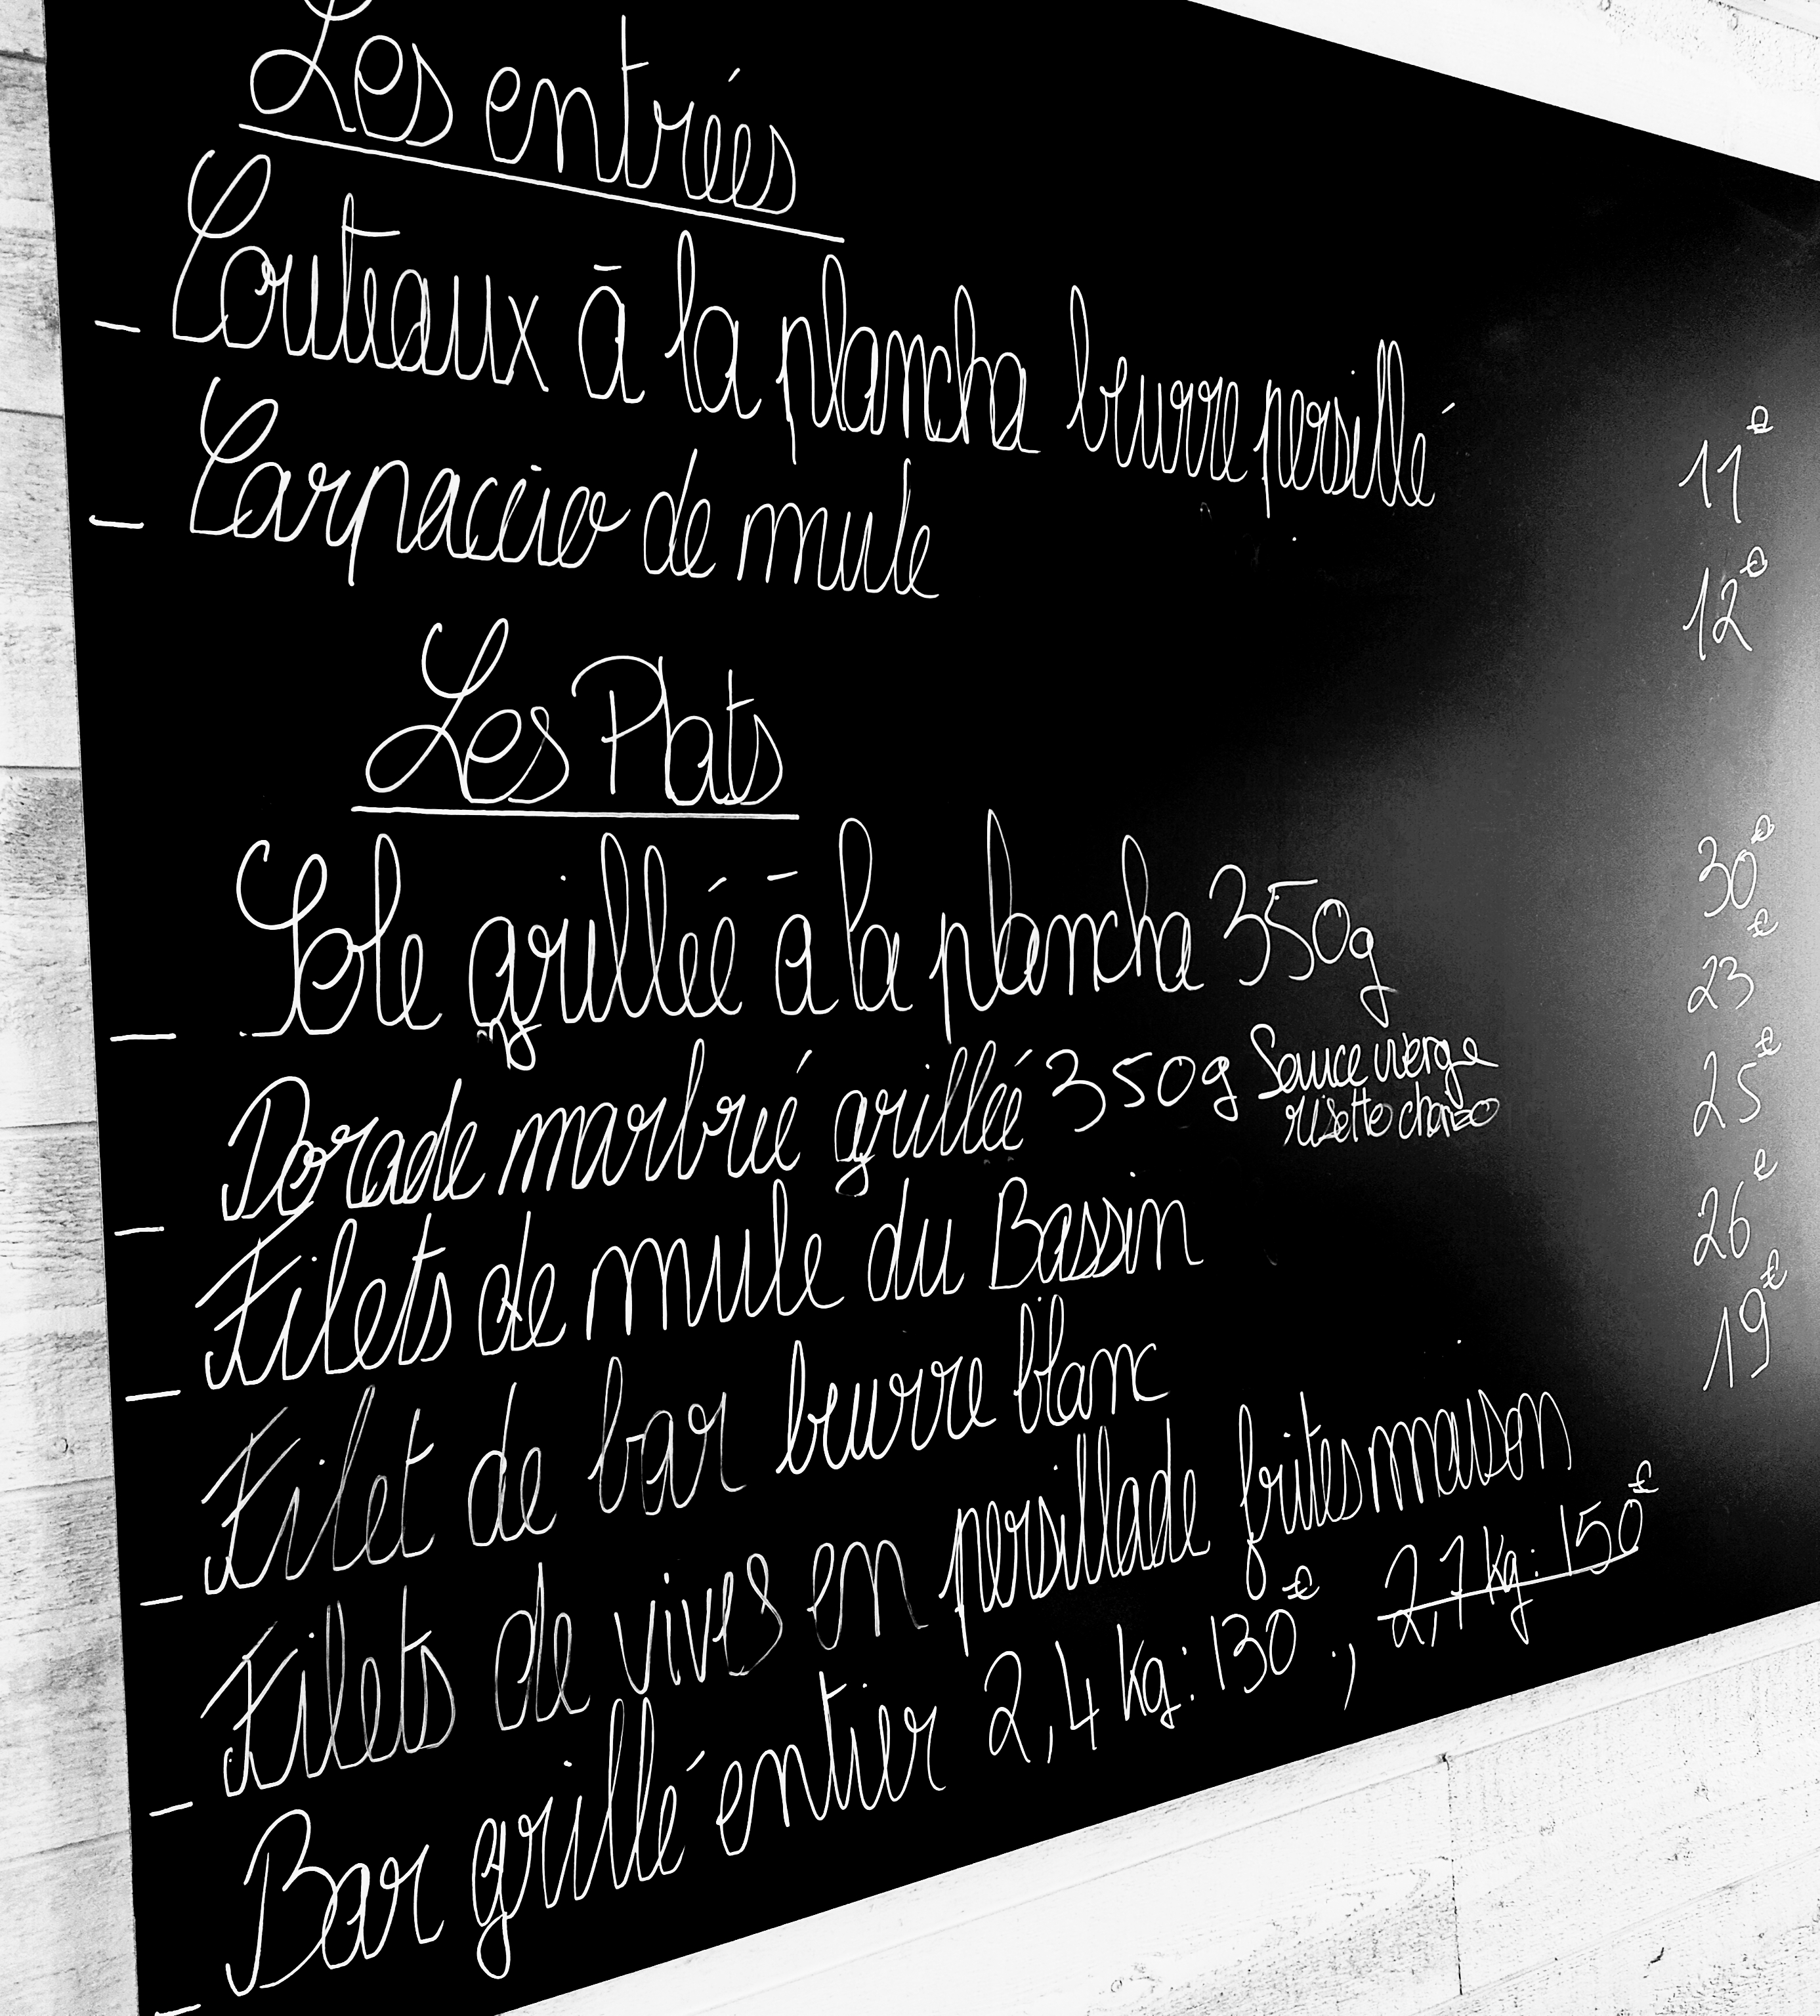 Les entrées
– Couteaux à la plancha beurre persillé 11€
– Carpaccio de mule 12€
Les Plats
– Sole grillée à la plancha 350g 30€
– Dorade marbré grillée 350g Sauce vierge 23€
risetto chorizo
– Filets de mule du Bassin 25€
– Filet de bar beurre blanc 26€
– Filets de vives en persillade frites maison 19€
– Bar grillé entier 2,4 kg: 130€ ., 2,7 kg: 150€